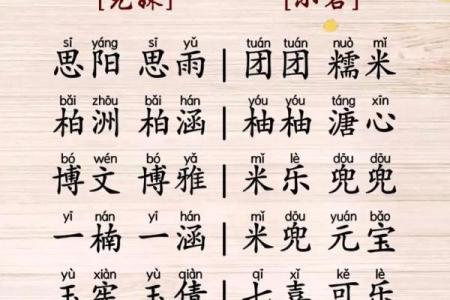 [兄妹] [小名]
sī yáng sī yǔ tuán tuán nuò mǐ
思阳 思雨 | 团团 糯米
bǎi zhōu bǎi hán yóu yóu táng xīn
柏洲 柏涵 | 柚柚 溏心
bó wén bó yǎ mǐ lè dōu dōu
博文 博雅 | 米乐 兜兜
yī nán yī hán mǐ dōu yuán bǎo
一楠 一涵 | 米兜 元宝
yù xiàn yù qiàn qī xǐ kě lè
玉宪 玉倩 | 七喜 可乐